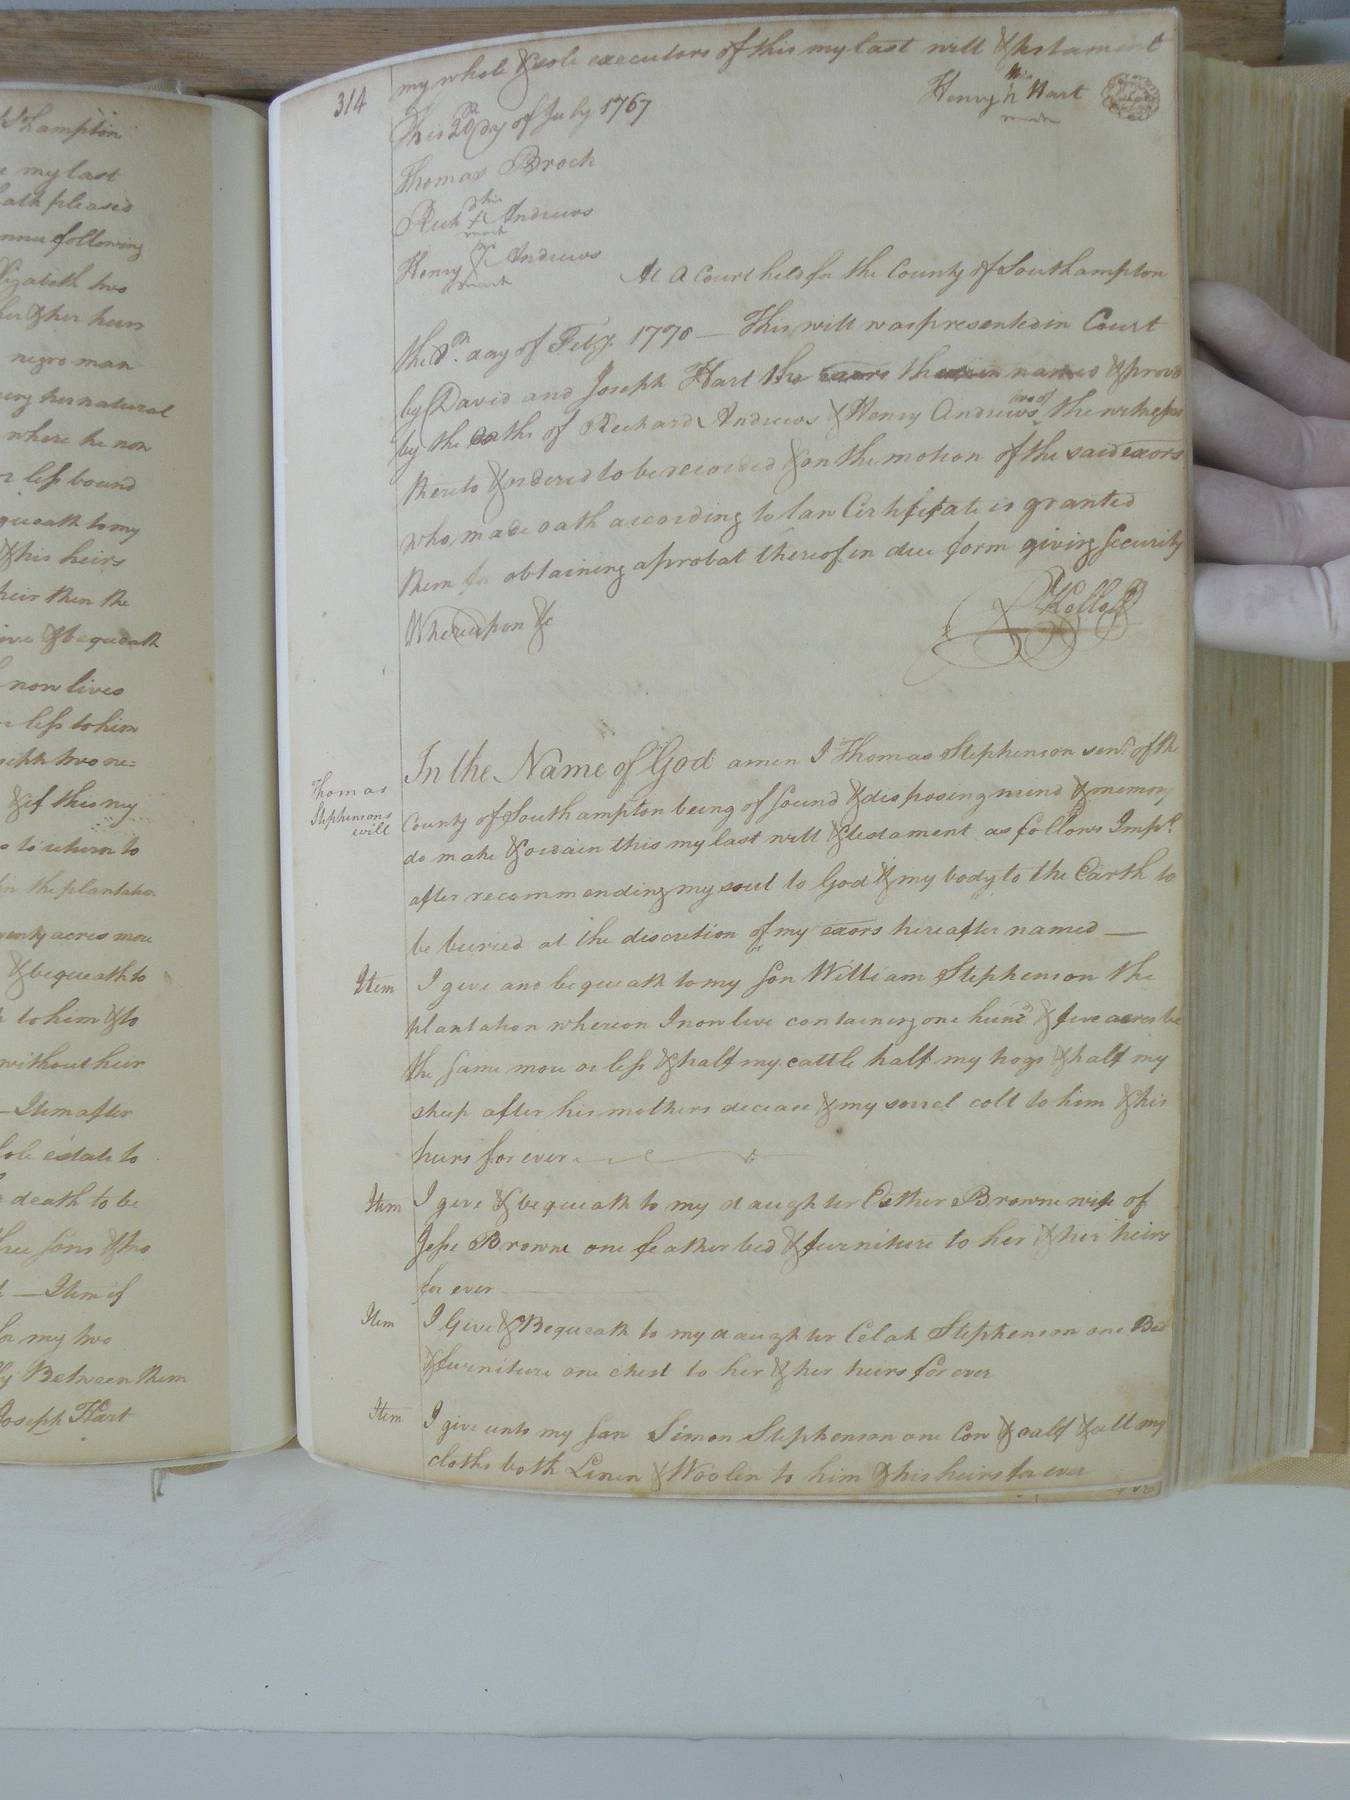 Southampton
my last
hath pleased
manner following
Elizabeth two
her & her heirs
negro man
during her natural
where he now
or less bound
bequeath to my
& his heirs
heir then the
give & bequeath
now lives
or less to him
Joseph two ne=
& if this my
to return to
in the plantation
twenty acres more
& bequeath to
to him & to
without heir
— Item after
whole estate to
death to be
three sons & two
— Item if
for my two
Between them
Joseph Hart
314
my whole & sole executors of this my last will & testament
This 20 day of July 1767
Henry his h Hart
mark
Thomas Brock
Rich his Andrews
mark
Henry his Andrews
mark
At a Court held for the County of Southampton
the 8th. day of Feby. 1770 — This will was presented in Court
by David and Joseph Hart the exors therein named & proved
by the oaths of Richard Andrews & Henry Andrews two of the witnesses
thereto & ordered to be recorded & on the motion of the said exors
who made oath according to law Certificate is granted
them for obtaining a probat thereof in due form giving security
Whereupon &c
Thomas
Stephensons
will
In the Name of God amen I Thomas Stephenson senr. of the
County of Southampton being of sound & disposing mind & memory
do make & ordain this my last will & testament as follows Impr.
after recommending my soul to God & my body to the Earth to
be buried at the discretion of my exors hereafter named —
Item I give and bequeath to my son William Stephenson the
plantation whereon I now live containing one hund & five acres be
the same more or less & half my cattle half my hogs & half my
sheep after his mothers decease & my sorrel colt to him & his
heirs for ever
Item I give & bequeath to my daughter Esther Browne wife of
Jesse Browne one feather bed & furniture to her & her heirs
for ever
Item I Give & Bequeath to my daughter Celah Stephenson one Bed
& furniture one chest to her & her heirs for ever
Item I give unto my son Simon Stephenson one Cow & calf & all my
cloths both Linen & Woolen to him & his heirs for ever